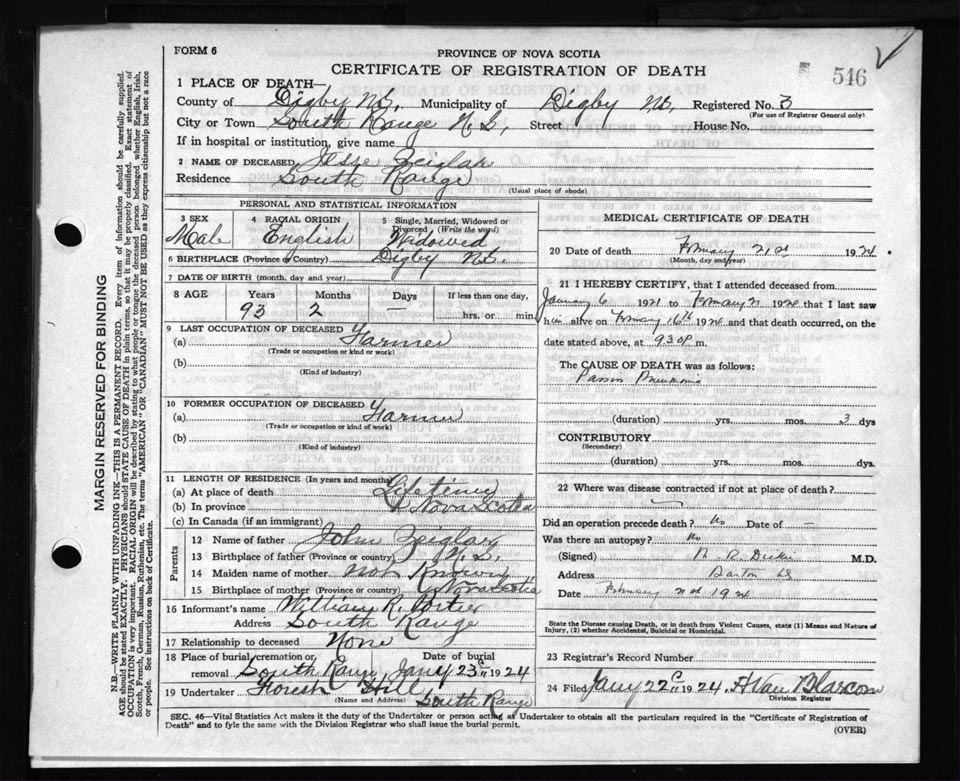 FORM 6
PROVINCE OF NOVA SCOTIA
CERTIFICATE OF REGISTRATION OF DEATH
546
1 PLACE OF DEATH—
County of Digby N.S. Municipality of Digby N.S. Registered No. 3
(For use of Registrar General only)
City or Town South Range N.S. Street House No.
If in hospital or institution, give name
2 NAME OF DECEASED Jesse Zeiglar
Residence South Range
(Usual place of abode)
PERSONAL AND STATISTICAL INFORMATION
3 SEX 4 RACIAL ORIGIN 5 Single, Married, Widowed or Divorced (Write the word)
Male English Widowed
6 BIRTHPLACE (Province or Country) Digby N.S.
7 DATE OF BIRTH (month, day and year)
8 AGE Years Months Days If less than one day,
93 2 — hrs. or min.
9 LAST OCCUPATION OF DECEASED
(a) Farmer
(Trade or occupation or kind or work)
(b)
(Kind of industry)
10 FORMER OCCUPATION OF DECEASED
(a) Farmer
(Trade or occupation or kind of work)
(b)
(Kind of industry)
11 LENGTH OF RESIDENCE (In years and months)
(a) At place of death Life time
(b) In province Nova Scotia
(c) In Canada (if an immigrant)
Parents
12 Name of father John Zeiglar
13 Birthplace of father (Province or country) N.S.
14 Maiden name of mother not Known
15 Birthplace of mother (Province or country) Nova Scotia
16 Informant's name William R. Porter
Address South Range
17 Relationship to deceased None
18 Place of burial, cremation or removal South Range Date of burial Jany 23 1924
19 Undertaker Forest Hill
(Name and Address) South Range
MEDICAL CERTIFICATE OF DEATH
20 Date of death February 21st 1924
(Month, day and year)
21 I HEREBY CERTIFY, that I attended deceased from
January 6 1921 to February 21 1924 that I last saw
him alive on February 16th 1924 and that death occurred, on
date stated above, at 930 P m.
The CAUSE OF DEATH was as follows:
Pneumonia
(duration) yrs. mos. 3 dys
CONTRIBUTORY
(Secondary)
(duration) yrs. mos. dys.
22 Where was disease contracted if not at place of death?
Did an operation precede death? No Date of —
Was there an autopsy? No
(Signed) M.D.
Address Barton
Date February 1924
State the Disease causing Death, or in death from Violent Causes, state (1) Means and Nature of Injury, (2) whether Accidental, Suicidal or Homicidal.
23 Registrar's Record Number
24 Filed Jany 22 1924, H Van Blarcom
Division Registrar
SEC. 46—Vital Statistics Act makes it the duty of the Undertaker or person acting as Undertaker to obtain all the particulars required in the "Certificate of Registration of
Death" and to fyle the same with the Division Registrar who shall issue the burial permit.
(OVER)
MARGIN RESERVED FOR BINDING
N.B.—WRITE PLAINLY WITH UNFADING INK—THIS IS A PERMANENT RECORD. Every item of information should be carefully supplied.
AGE should be stated EXACTLY. PHYSICIANS should STATE CAUSE OF DEATH in plain terms, so that it may be properly classified. Exact statement of
OCCUPATION is very important. RACIAL ORIGIN will be described by stating to what people or tongue the deceased person belonged whether English, Irish,
Scotch, French, German, Russian, Ruthenian, etc. The terms "AMERICAN" OR "CANADIAN" MUST NOT BE USED as they express citizenship but not a race
or people. See instructions on back of Certificate.